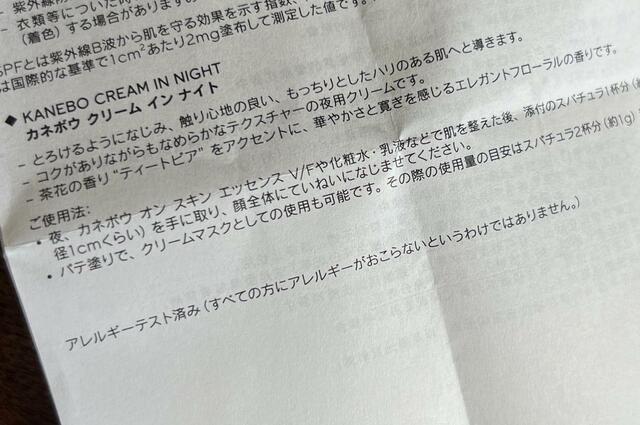 - 紫外線防
- 衣類等についた時
(着色)する場合があります
SPFとは紫外線B波から肌を守る効果を示す指数、
は国際的な基準で1cm²あたり2mg塗布して測定した値です。
◆ KANEBO CREAM IN NIGHT
カネボウ クリーム イン ナイト
- とろけるようになじみ、触り心地の良い、もっちりとしたハリのある肌へと導きます。
- コクがありながらもなめらかなテクスチャーの夜用クリームです。
- 茶花の香り“ティートピア”をアクセントに、華やかさと寛ぎを感じるエレガントフローラルの香りです。
ご使用法:
• 夜、カネボウ オン スキン エッセンス V/Fや化粧水・乳液などで肌を整えた後、添付のスパチュラ1杯分(約
径1cmくらい)を手に取り、顔全体にていねいになじませてください。
• パテ塗りで、クリームマスクとしての使用も可能です。その際の使用量の目安はスパチュラ2杯分(約1g)
アレルギーテスト済み(すべての方にアレルギーがおこらないというわけではありません。)